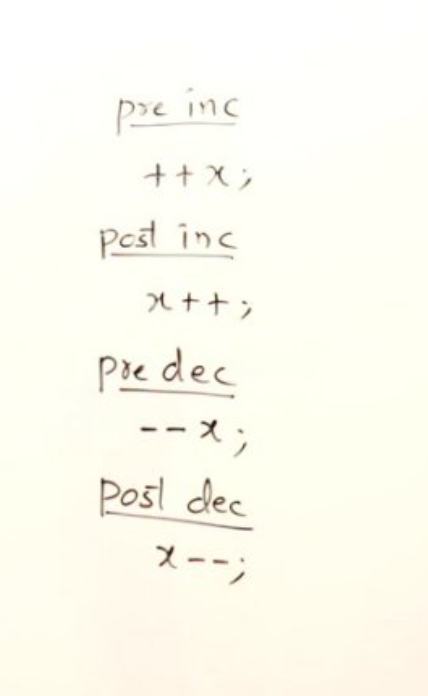 pre inc
++x;
post inc
x++;
pre dec
--x;
post dec
x--;